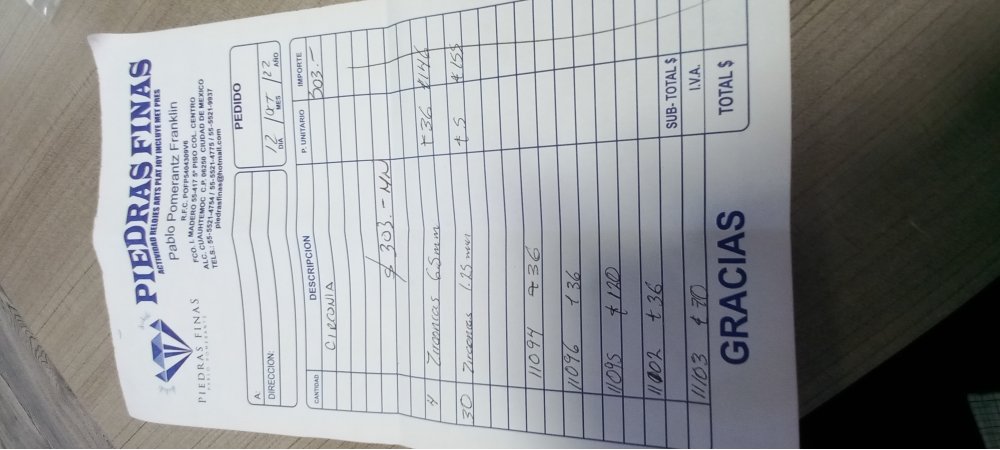 PIEDRAS FINAS
PABLO POMERANTZ
PIEDRAS FINAS
ACTIVIDAD RELOJES ARTS PLAT JOY INCLUYE MET PRES
Pablo Pomerantz Franklin
R.F.C. POFP5404309V6
FCO. I. MADERO 55-417 5° PISO COL. CENTRO
ALC. CUAUHTEMOC C.P. 06250 CIUDAD DE MEXICO
TELS.: 55-5521-4754 / 55-5521-4775 / 55-5521-9937
piedrasfinas@hotmail.com
A:
DIRECCION:
PEDIDO
12 / OCT / 22
DIA MES AÑO
CANTIDAD DESCRIPCION P. UNITARIO IMPORTE
CIRCONIA 303.-
$303.- MN
4 Zirconias 6.5mm $36 $146
30 Zirconias 1.25 mm $5 $155
11094 $36
11096 $36
11095 $120
11002 $36
11103 $70
SUB-TOTAL $
I.V.A.
TOTAL $
GRACIAS